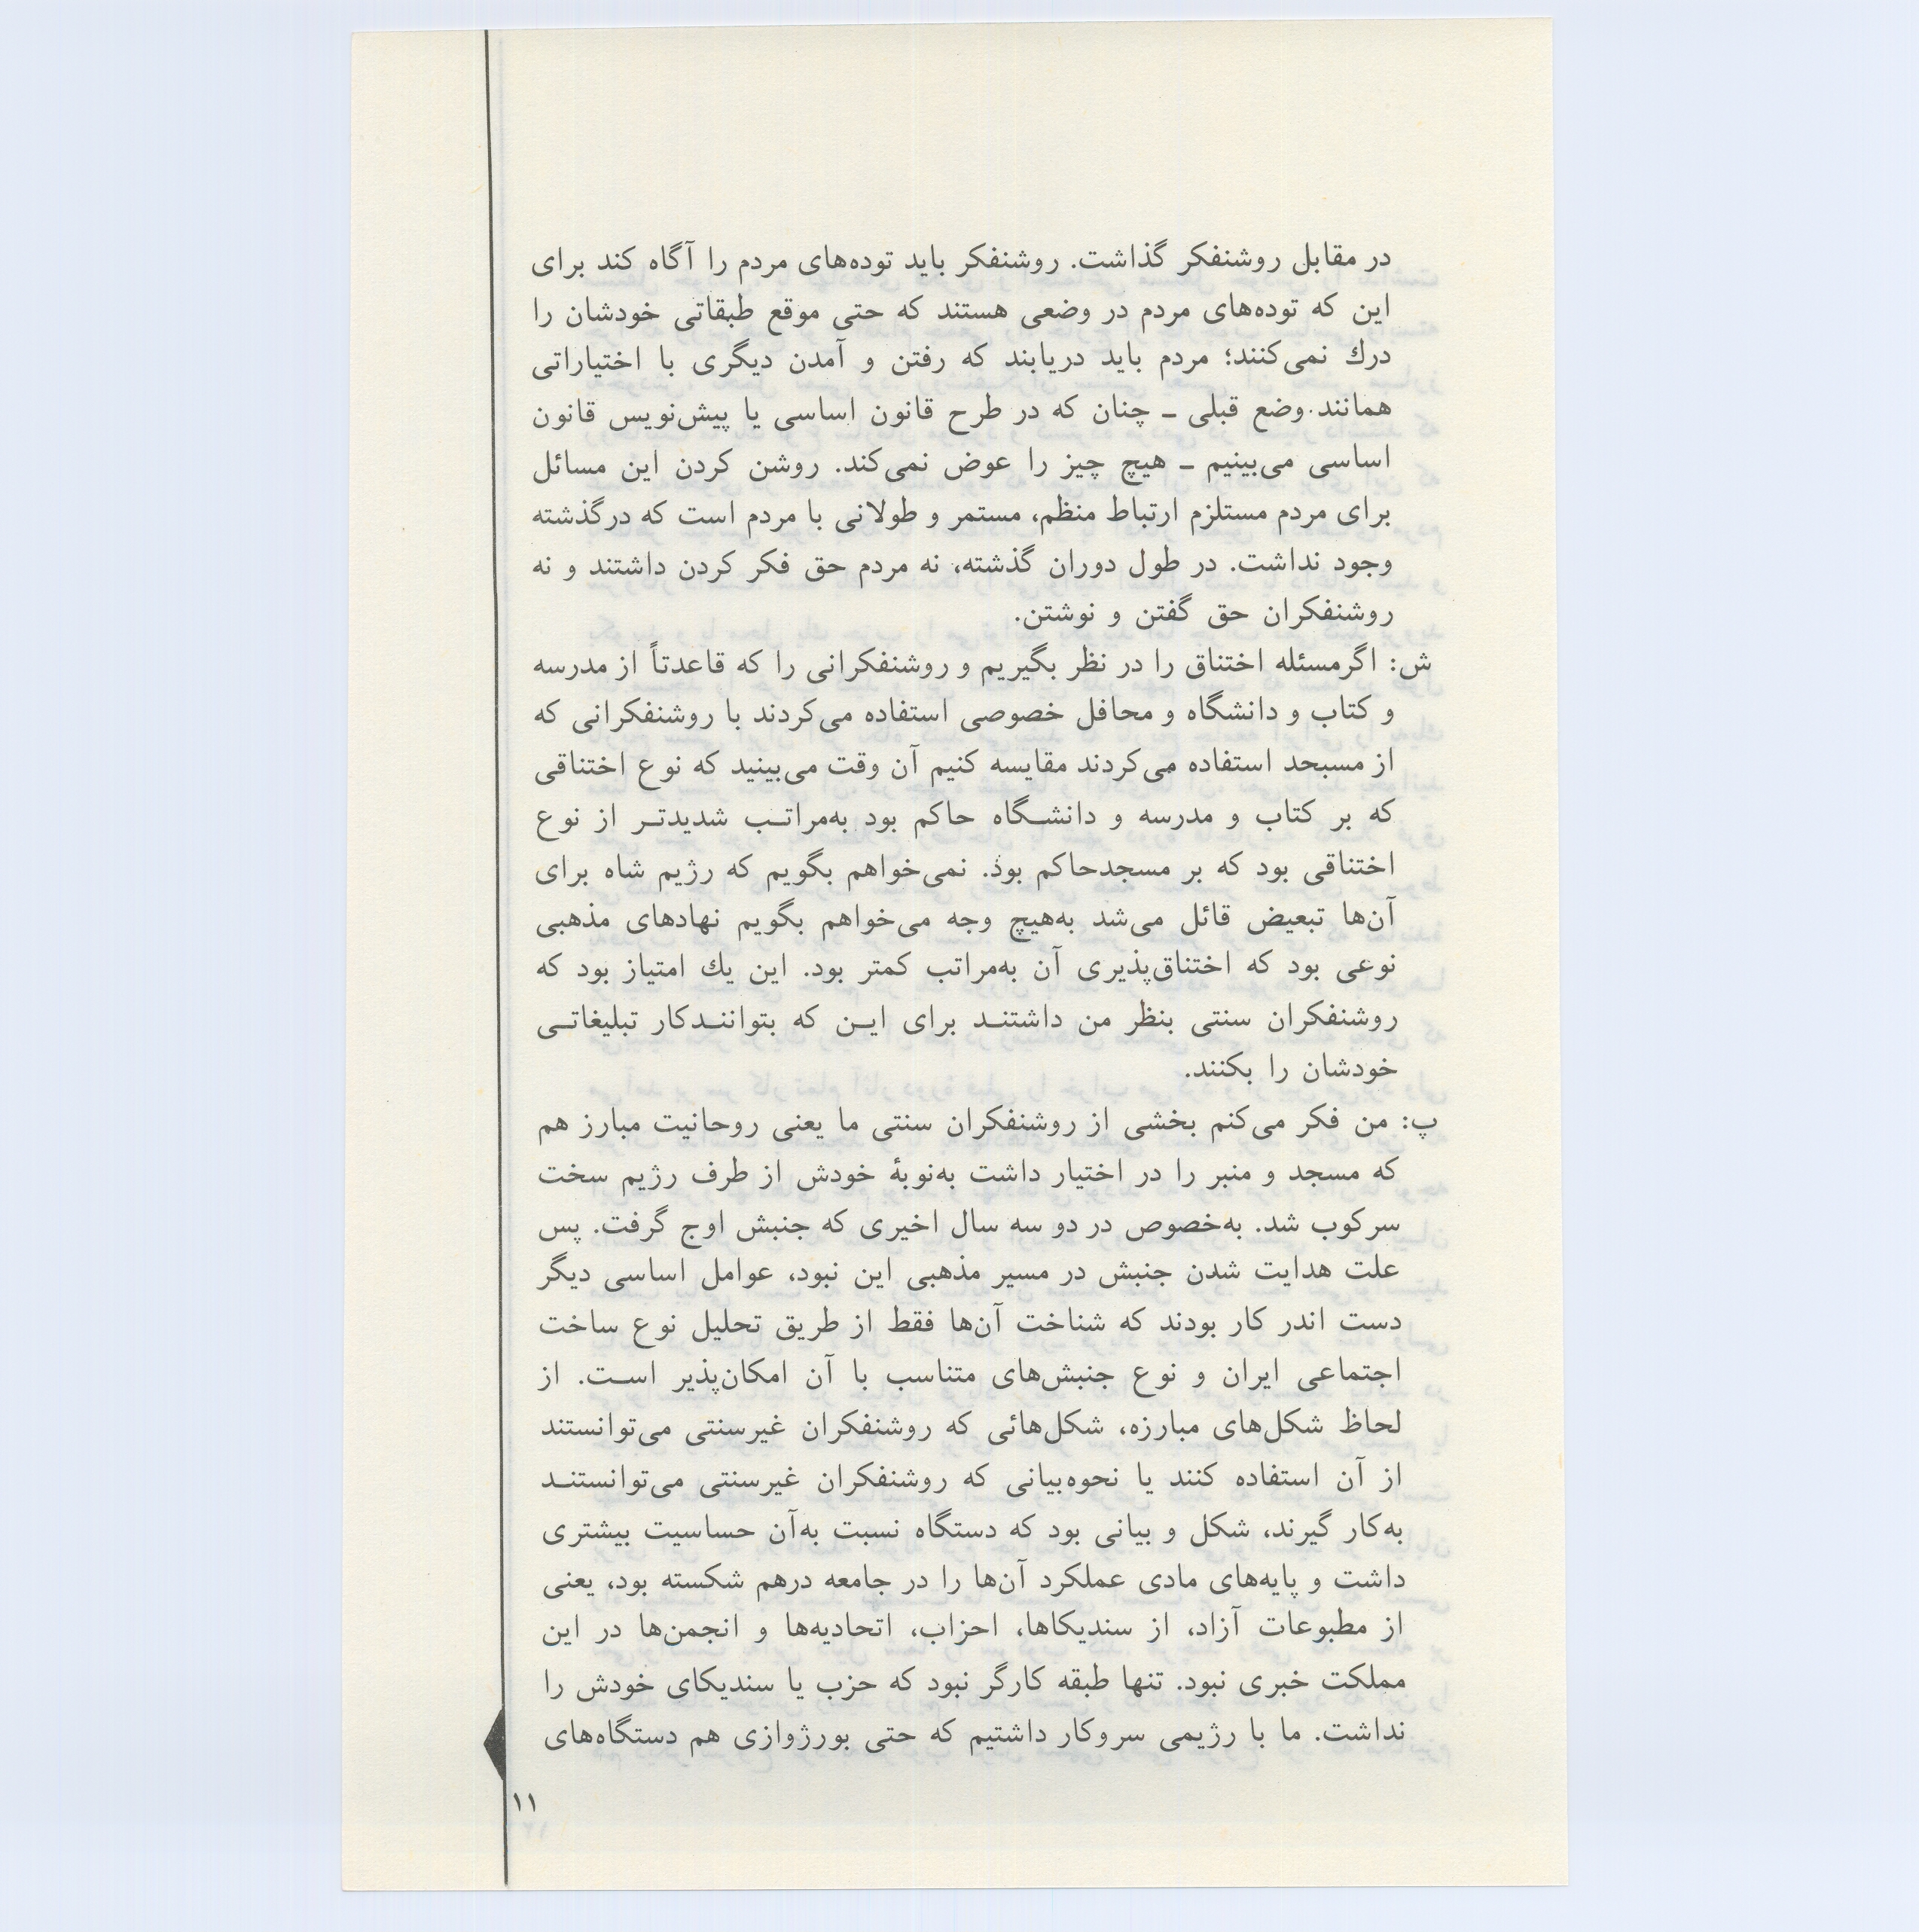 در مقابل روشنفکر گذاشت. روشنفکر باید توده‌های مردم را آگاه کند برای
این که توده‌های مردم در وضعی هستند که حتی موقع طبقاتی خودشان را
درك نمی‌کنند؛ مردم باید دریابند که رفتن و آمدن دیگری با اختیاراتی
همانند وضع قبلی ـ چنان که در طرح قانون اساسی یا پیش‌نویس قانون
اساسی می‌بینیم ـ هیچ چیز را عوض نمی‌کند. روشن کردن این مسائل
برای مردم مستلزم ارتباط منظم، مستمر و طولانی با مردم است که درگذشته
وجود نداشت. در طول دوران گذشته، نه مردم حق فکر کردن داشتند و نه
روشنفکران حق گفتن و نوشتن.
ش: اگرمسئله اختناق را در نظر بگیریم و روشنفکرانی را که قاعدتاً از مدرسه
و کتاب و دانشگاه و محافل خصوصی استفاده می‌کردند با روشنفکرانی که
از مسبحد استفاده می‌کردند مقایسه کنیم آن وقت می‌بینید که نوع اختناقی
که بر کتاب و مدرسه و دانشـگاه حاکم بود به‌مراتـب شدیدتـر از نوع
اختناقی بود که بر مسجدحاکم بوذ. نمی‌خواهم بگویم که رژیم شاه برای
آن‌ها تبعیض قائل می‌شد به‌هیچ وجه می‌خواهم بگویم نهادهای مذهبی
نوعی بود که اختناق‌پذیری آن به‌مراتب کمتر بود. این یك امتیاز بود که
روشنفکران سنتی بنظر من داشتنـد برای ایـن که بتواننـدکار تبلیغاتـی
خودشان را بکنند.
پ: من فکر می‌کنم بخشی از روشنفکران سنتی ما یعنی روحانیت مبارز هم
که مسجد و منبر را در اختیار داشت به‌نوبهٔ خودش از طرف رژیم سخت
سرکوب شد. به‌خصوص در دو سه سال اخیری که جنبش اوج گرفت. پس
علت هدایت شدن جنبش در مسیر مذهبی این نبود، عوامل اساسی دیگر
دست اندر کار بودند که شناخت آن‌ها فقط از طریق تحلیل نوع ساخت
اجتماعی ایران و نوع جنبش‌های متناسب با آن امکان‌پذیر اسـت. از
لحاظ شکل‌های مبارزه، شکل‌هائی که روشنفکران غیرسنتی می‌توانستند
از آن استفاده کنند یا نحوه‌بیانی که روشنفکران غیرسنتی می‌توانستنـد
به‌کار گیرند، شکل و بیانی بود که دستگاه نسبت به‌آن حساسیت بیشتری
داشت و پایه‌های مادی عملکرد آن‌ها را در جامعه درهم شکسته بود، یعنی
از مطبوعات آزاد، از سندیکاها، احزاب، اتحادیه‌ها و انجمن‌ها در این
مملکت خبری نبود. تنها طبقه کارگر نبود که حزب یا سندیکای خودش را
نداشت. ما با رژیمی سروکار داشتیم که حتی بورژوازی هم دستگاه‌های
۱۱